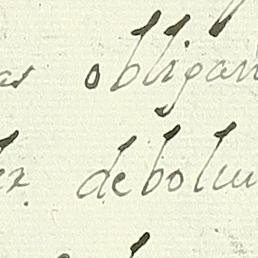 as obligan
ex debolu